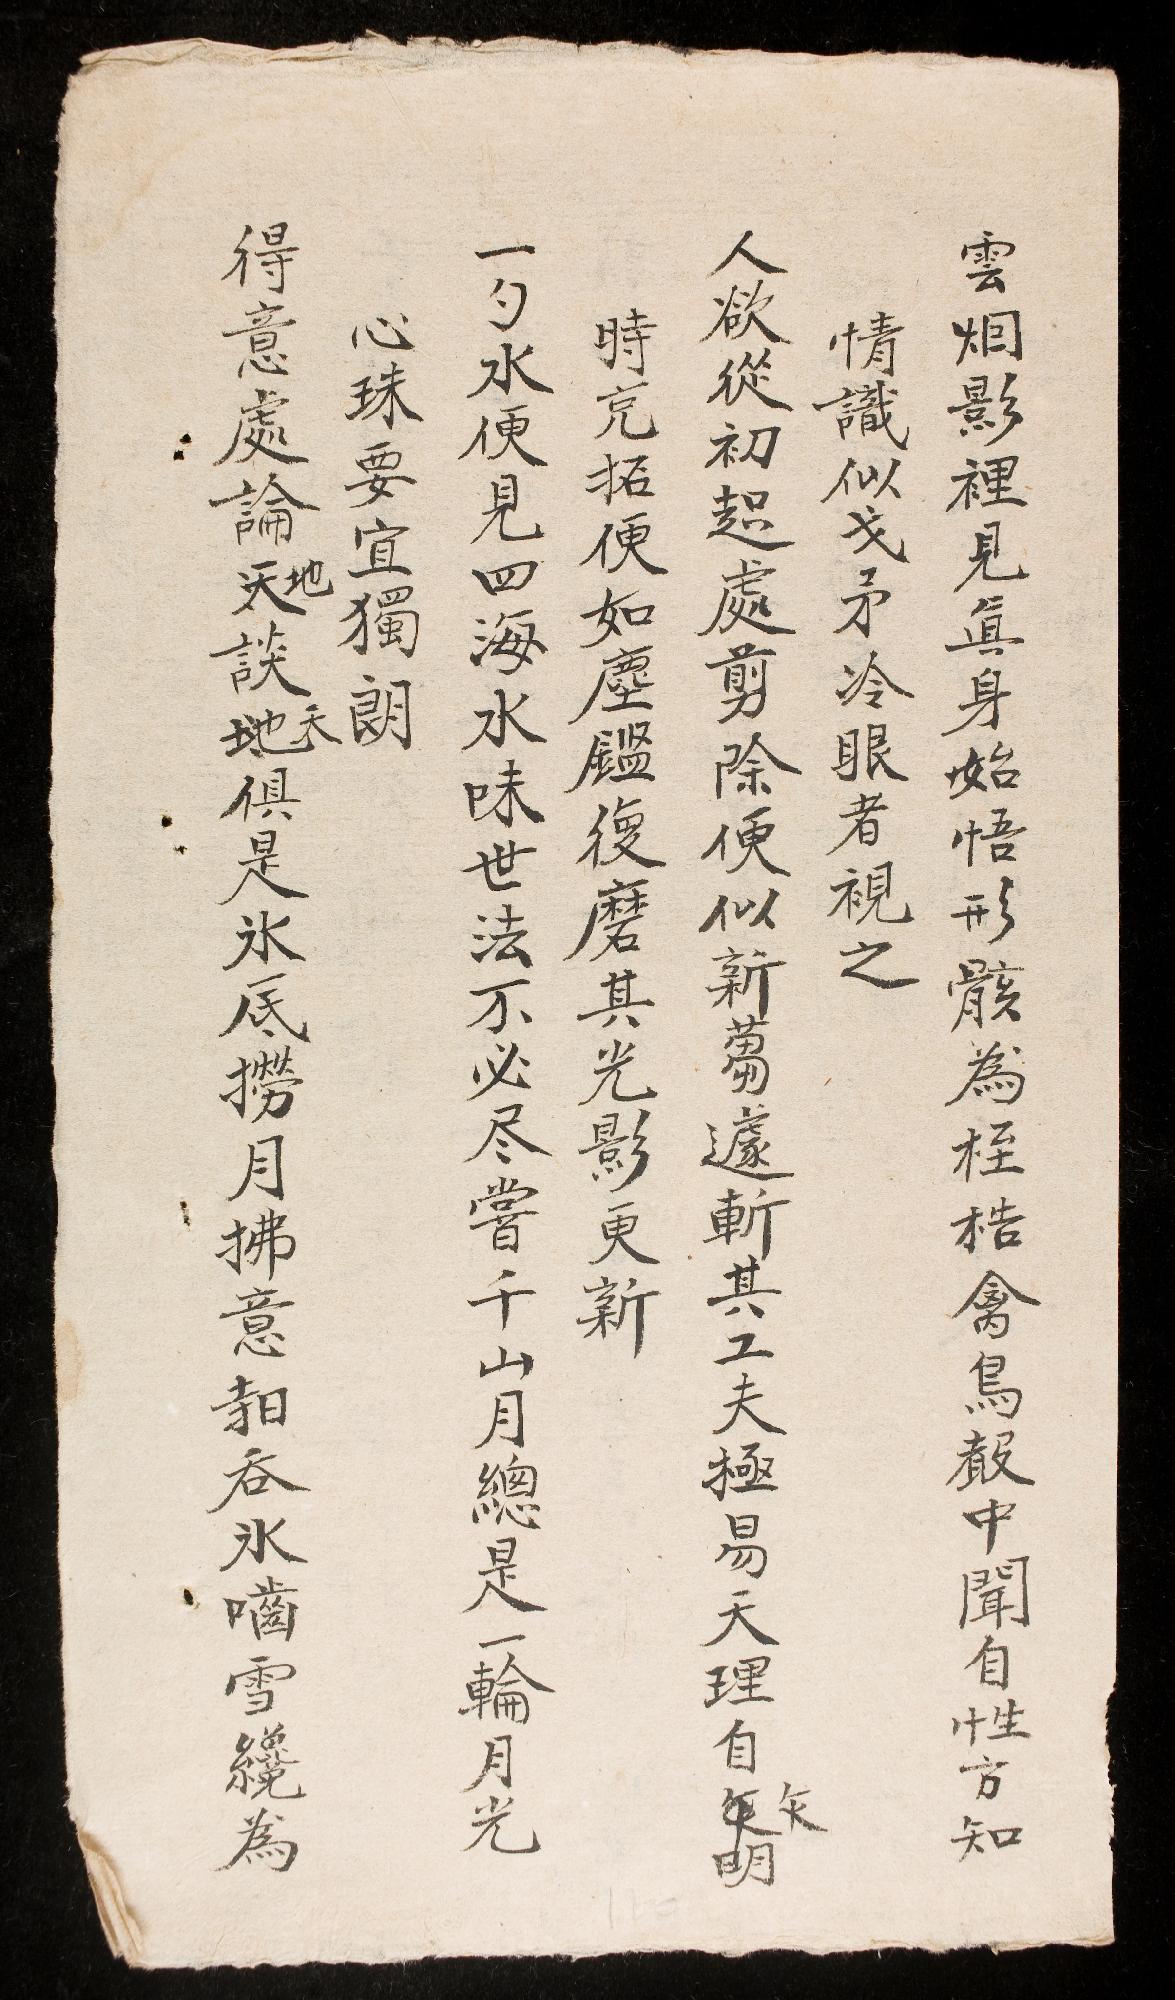 雲烟影裡見真身始悟形骸為桎梏禽鳥聲中聞自性方知
情識似戈矛冷眼者視之
人欲從初起處剪除便似新蒭遽斬其工夫極易天理自乍明
時充拓便如塵鑑復磨其光影更新
一勺水便見四海水味世法不必尽嘗千山月總是一輪月光
心珠要宜獨朗
得意處論地談天俱是氷底撈月拂意䄎吞氷嚙雪纔為